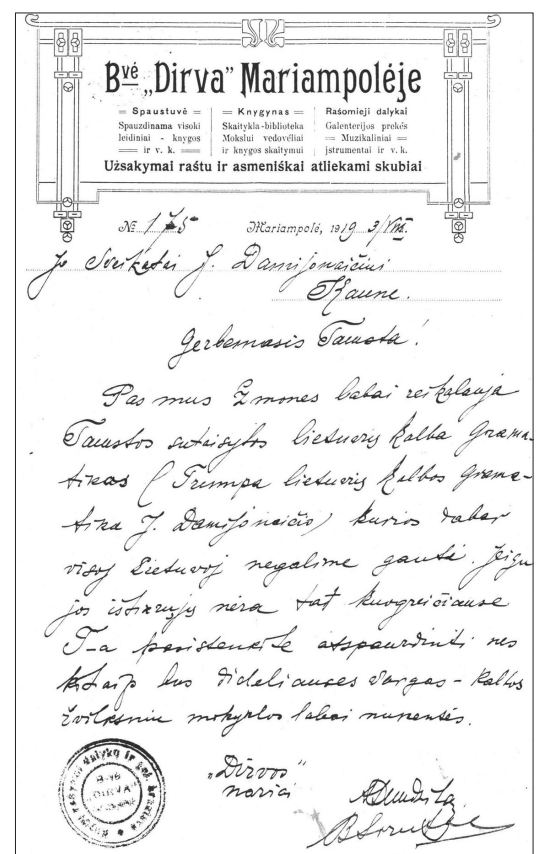 Bvė „Dirva" Mariampolėje
= Spaustuvė =
Spauzdinama visoki
leidiniai - knygos
== ir v. k. ==
= Knygynas =
Skaitykla-biblioteka
Mokslui vedovėliai
ir knygos skaitymui
Rašomieji dalykai
Galenterijos prekės
= Muzikaliniai =
įstrumentai ir v. k.
Užsakymai raštu ir asmeniškai atliekami skubiai
№ 175 Mariampolė, 1919 3/VIII.
Jo Sveikatai J. Damijonaičiui
Kaune.
Gerbemasis Tamsta!
Pas mus žmones labai reikalauja
Tamstos sutaisytos lietuvių kalba grama-
tikas (Trumpa lietuvių kalbos grama-
tika J. Damijonaičio) kurios dabar
visoj Lietuvoj negalime gauti. Jeigu
jos ištikrųjų nėra tat kuogreičiause
T-a pasistenkite atspaurdinti nes
kitaip bus dideliauses vargas - kalbos
žvilksniu mokyklos labai nukentės.
„Dirvos"
nariai
B-vė
"DIRVA"